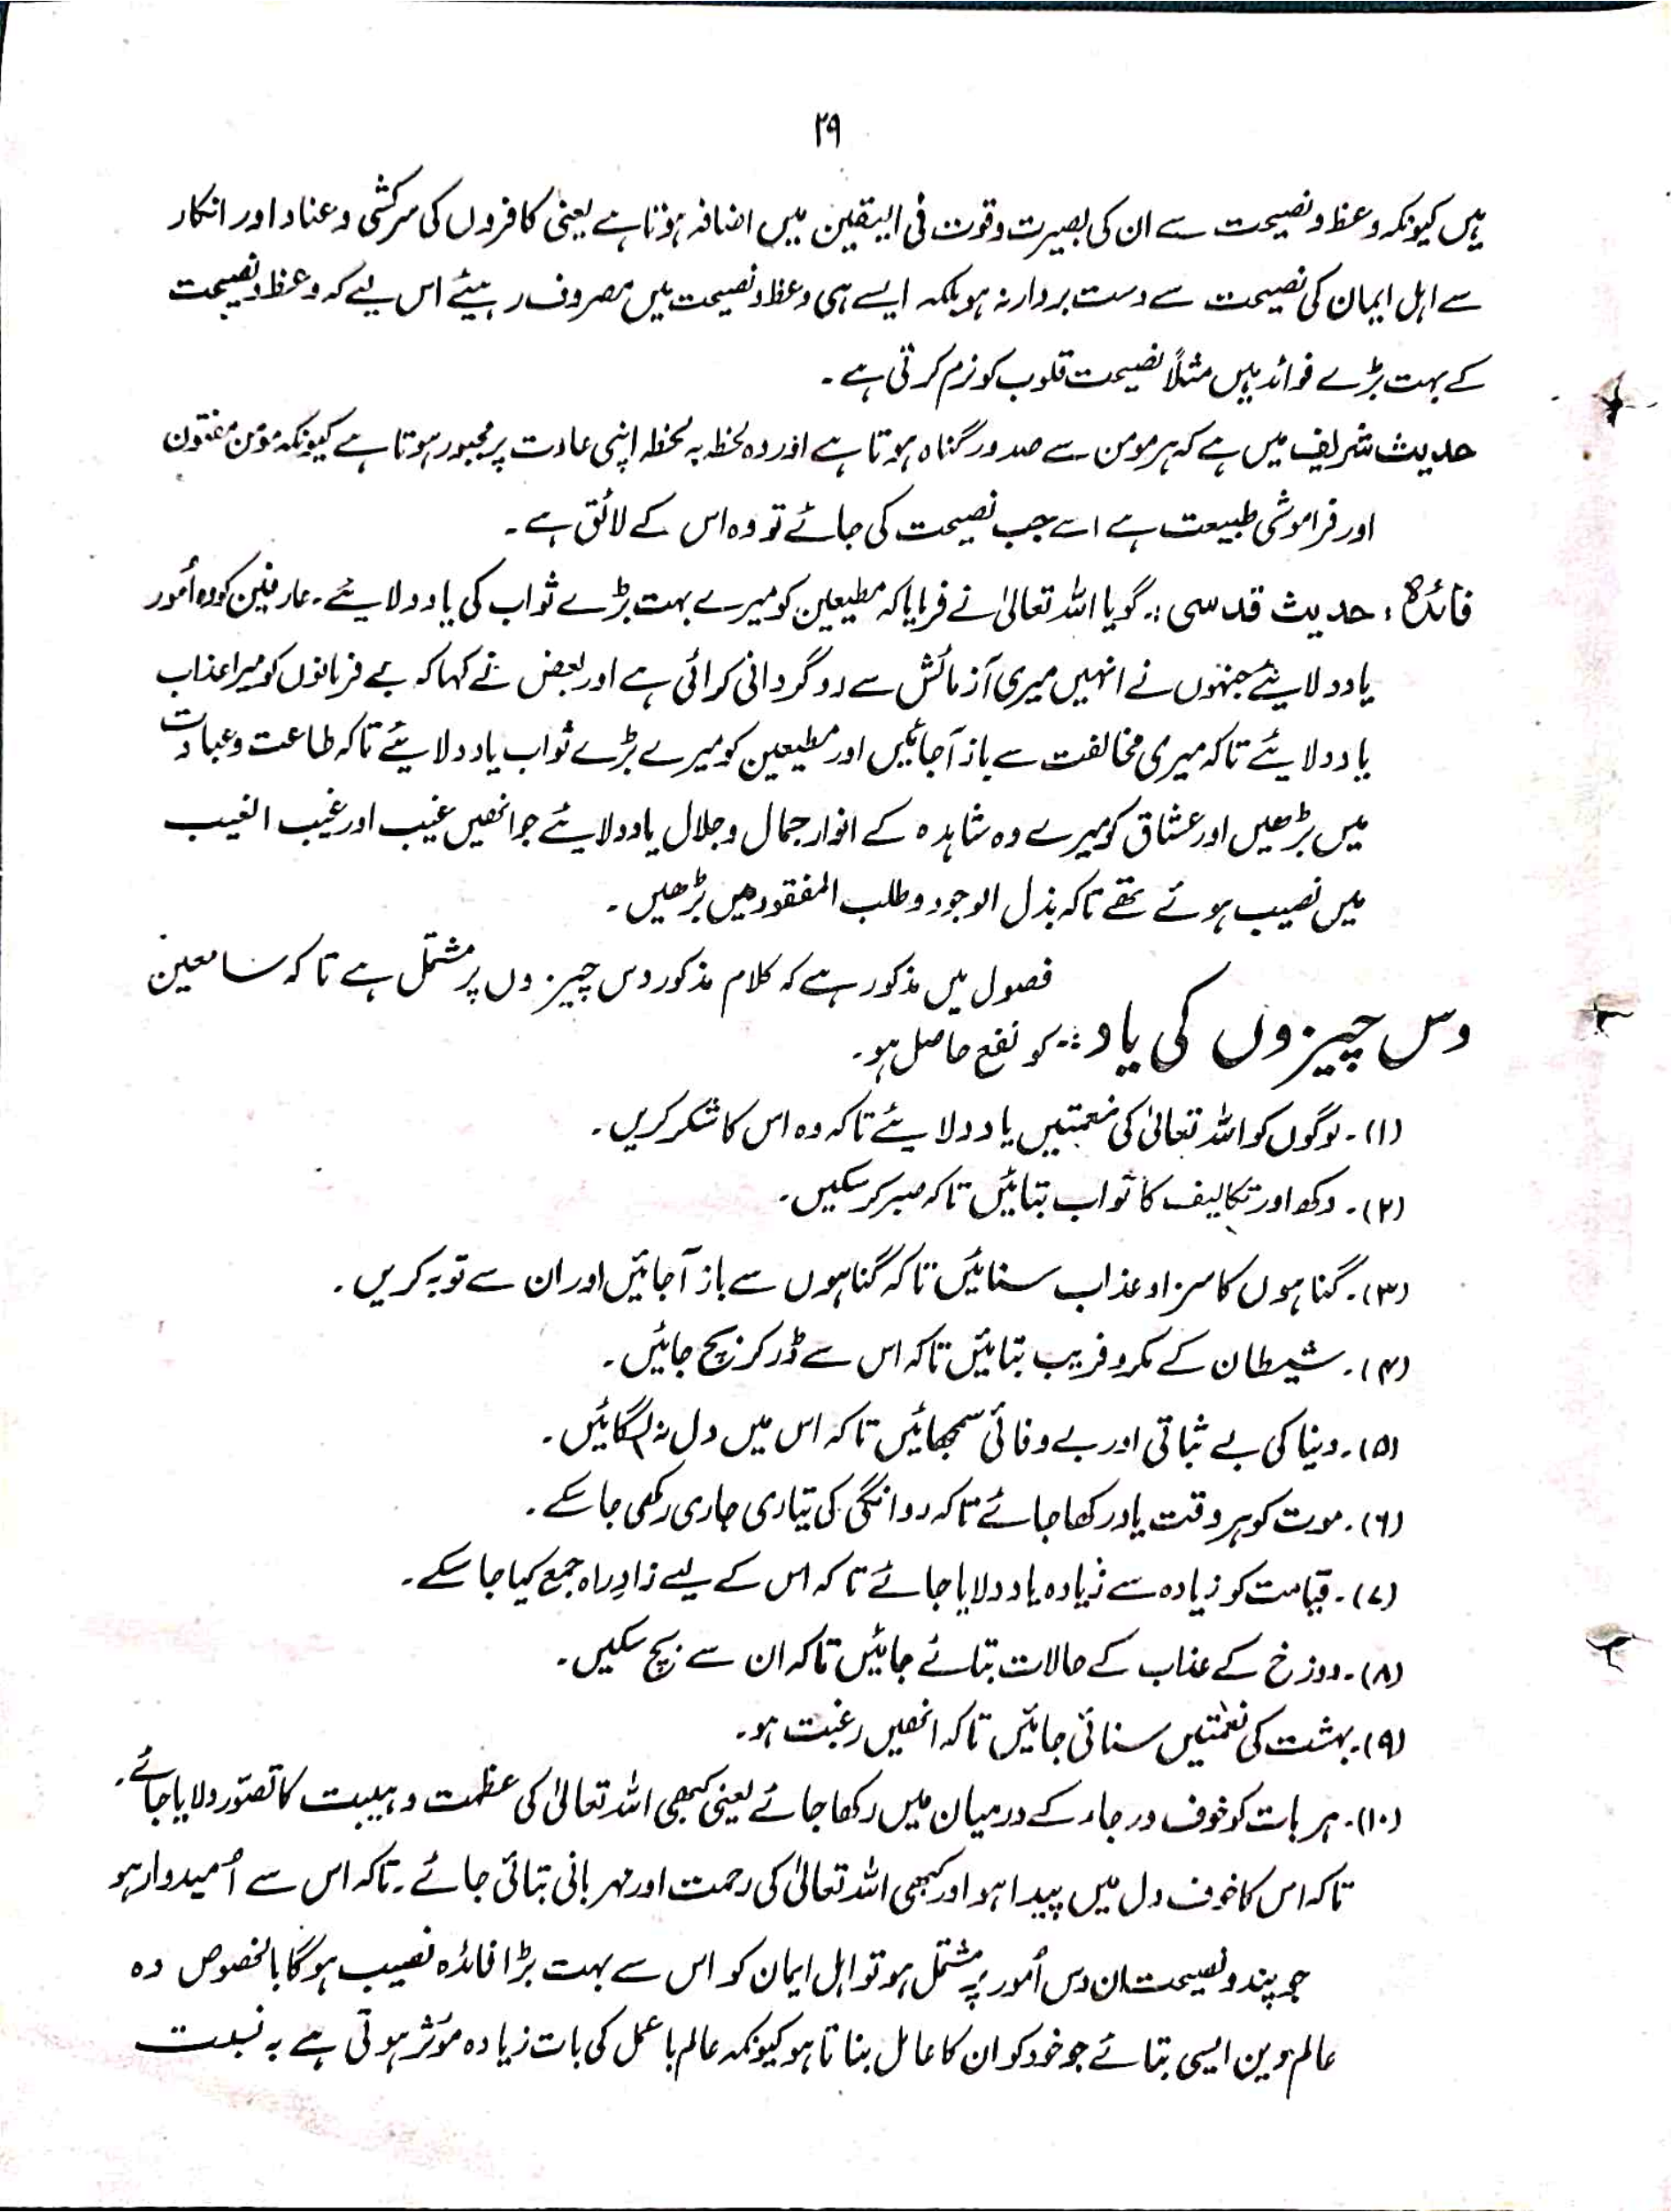 ۲۹
ہیں کیونکہ وعظ و نصیحت سے ان کی بصیرت و قوت فی الیقین میں اضافہ ہوتا ہے یعنی کافروں کی سرکشی و عناد اور انکار
سے اہل ایمان کی نصیحت سے دست بردار نہ ہو بلکہ ایسے ہی وعظ و نصیحت میں مصروف رہیئے اس لیے کہ وعظ و نصیحت
کے بہت بڑے فوائد ہیں مثلاً نصیحت قلوب کو نرم کرتی ہے ۔
حدیث شریف میں ہے کہ ہر مومن سے صدور گناہ ہوتا ہے اور وہ لحظہ بہ لحظہ اپنی عادت پر مجبور ہوتا ہے کیونکہ مومن مفتون
اور فراموشی طبیعت ہے اسے جب نصیحت کی جائے تو وہ اس کے لائق ہے ۔
فائدہ : حدیث قدسی :۔ گویا اللہ تعالیٰ نے فرمایا کہ مطیعین کو میرے بہت بڑے ثواب کی یاد دلایئے ۔ عارفین کو وہ اُمور
یاد دلایئے جنہوں نے انہیں میری آزمائش سے روگردانی کرائی ہے اور بعض نے کہا کہ بے فرمانوں کو میرا عذاب
یاد دلایئے تاکہ میری مخالفت سے باز آجائیں اور مطیعین کو میرے بڑے ثواب یاد دلایئے تاکہ طاعت و عبادت
میں بڑھیں اور عشاق کو میرے وہ مشاہدہ کے انوار جمال و جلال یاد دلایئے جو انھیں غیب اور غیب الغیب
میں نصیب ہوئے تھے تاکہ بذل الوجود و طلب المفقود میں بڑھیں ۔
فصول میں مذکور ہے کہ کلام مذکور دس چیزوں پر مشتمل ہے تاکہ سامعین
دس چیزوں کی یاد :۔ کو نفع حاصل ہو۔
(۱)۔ لوگوں کو اللہ تعالیٰ کی نعمتیں یاد دلایئے تاکہ وہ اس کا شکر کریں ۔
(۲)۔ دکھ اور تکالیف کا ثواب بتائیں تاکہ صبر کر سکیں۔
(۳)۔ گناہوں کا سزا و عذاب سنائیں تاکہ گناہوں سے باز آجائیں اور ان سے توبہ کریں ۔
(۴)۔ شیطان کے مکر و فریب بتائیں تاکہ اس سے ڈر کر بچ جائیں ۔
(۵)۔ دنیا کی بے ثباتی اور بے وفائی سمجھائیں تاکہ اس میں دل نہ لگائیں ۔
(۶)۔ موت کو ہر وقت یاد رکھا جائے تاکہ روانگی کی تیاری جاری رکھی جاسکے ۔
(۷)۔ قیامت کو زیادہ سے زیادہ یاد دلایا جائے تاکہ اس کے لیے زادِ راہ جمع کیا جاسکے ۔
(۸)۔ دوزخ کے عذاب کے حالات بتائے جائیں تاکہ ان سے بچ سکیں ۔
(۹)۔ بہشت کی نعمتیں سنائی جائیں تاکہ انھیں رغبت ہو۔
(۱۰)۔ ہر بات کو خوف و رجاء کے درمیان میں رکھا جائے یعنی کبھی اللہ تعالیٰ کی عظمت و ہیبت کا تصوّر دلایا جائے۔
تاکہ اس کا خوف دل میں پیدا ہو اور کبھی اللہ تعالیٰ کی رحمت اور مہربانی بتائی جائے ۔ تاکہ اس سے اُمیدوار ہو
جو پند و نصیحت ان دس اُمور پر مشتمل ہو تو اہل ایمان کو اس سے بہت بڑا فائدہ نصیب ہوگا بالخصوص وہ
عالم دین ایسی بتائے جو خود کو ان کا عامل بناتا ہو کیونکہ عالم باعمل کی بات زیادہ موثر ہوتی ہے بہ نسبت